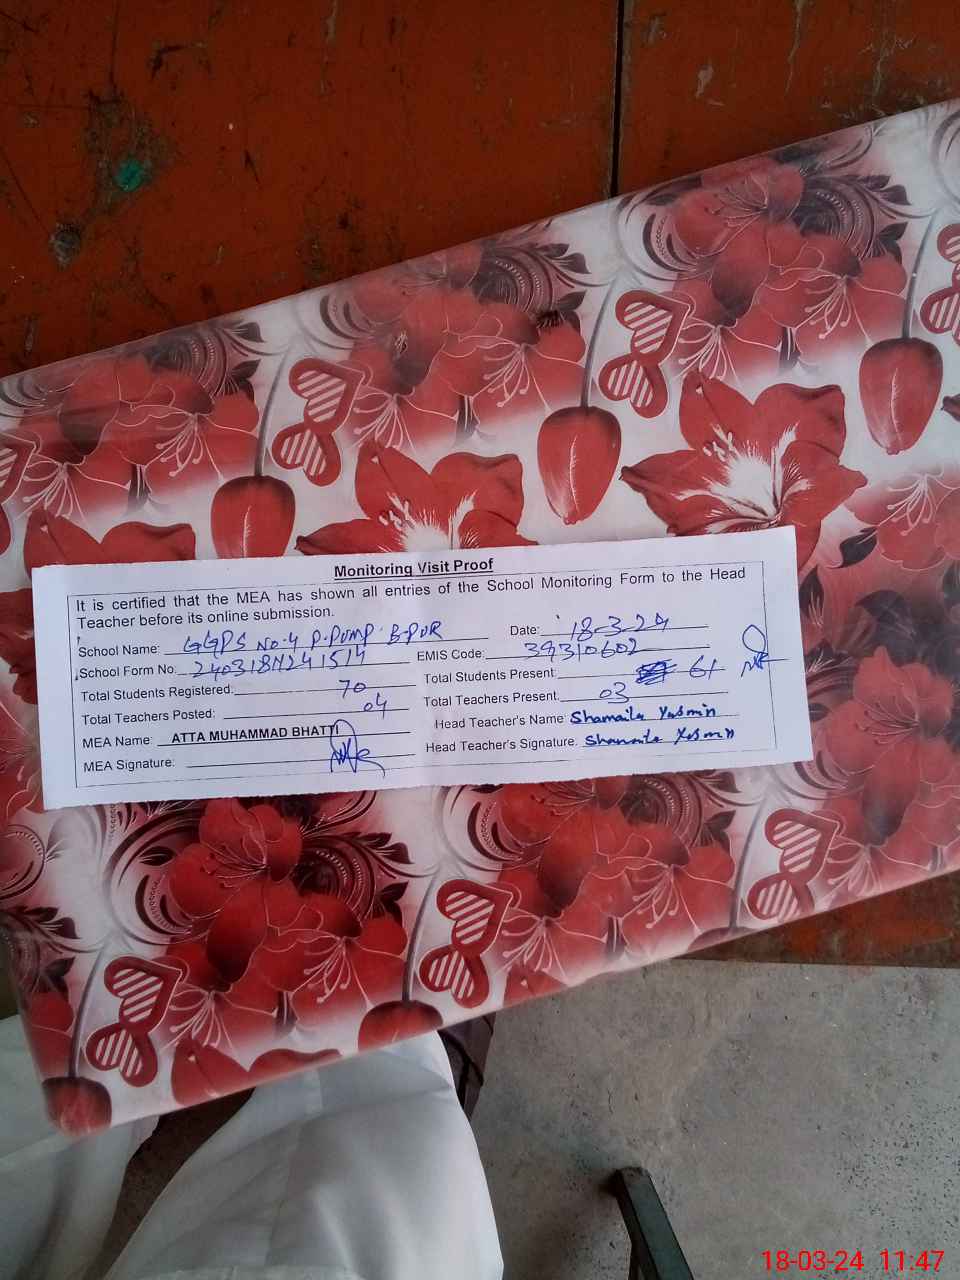 Monitoring Visit Proof
It is certified that the MEA has shown all entries of the School Monitoring Form to the Head
Teacher before its online submission.
School Name: GGPS No.4 P.PUMP.B.PUR Date: 18-3-24
School Form No: EMIS Code: 39310602
Total Students Registered: 70 Total Students Present: 61
Total Teachers Posted: 04 Total Teachers Present: 03
MEA Name: ATTA MUHAMMAD BHATTI Head Teacher's Name Shamaila Yasmin
MEA Signature: Head Teacher's Signature. Shamaila Yasmin
18-03-24 11:47